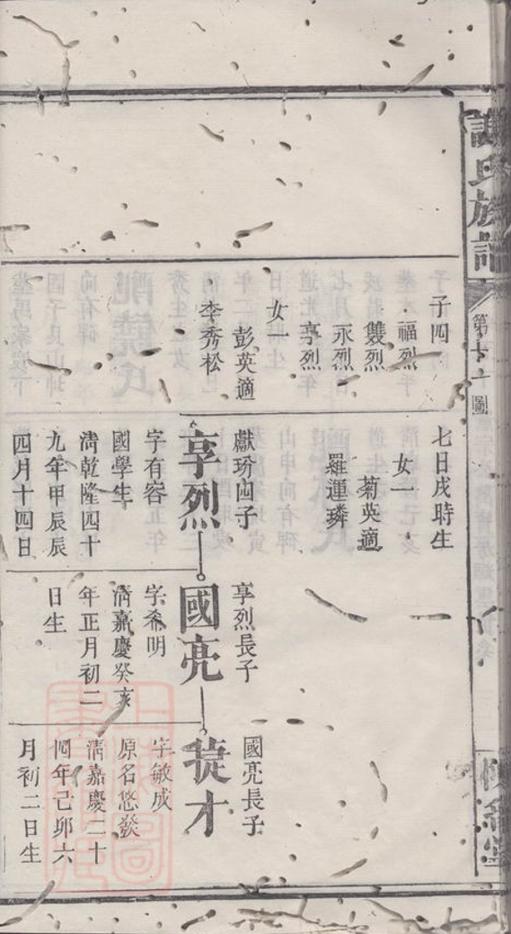 謝氏族譜
第十一圖
子四
福烈
雙烈
永烈
享烈
女一
彭英適
李秀松
七日戌時生
女一
菊英適
羅運璘
獻玢四子
享烈
字有容
國學生
清乾隆四十
九年甲辰辰
四月十四日
享烈長子
國亮
字希明
清嘉慶癸亥
年正月初二
日生
國亮長子
才
字敏成
原名悠發
清嘉慶二十
四年己卯六
月初二日生